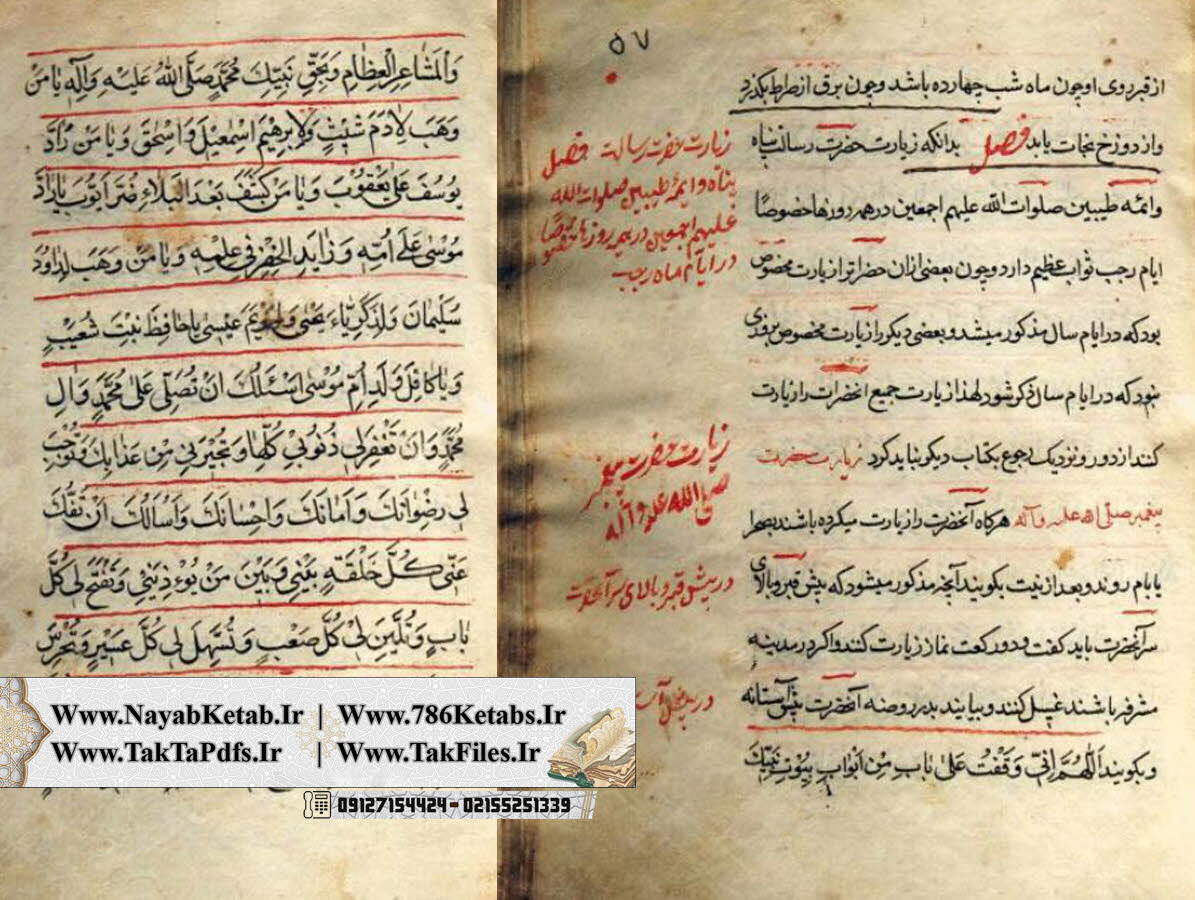 ۵۷
از قبر روی او چون ماه شب چهارده باشد و چون برق از صراط بگذرد
و از دوزخ نجات یابد فصل بدانکه زیارت حضرت رسالت پناه
و ائمه طیبین صلوات الله علیهم اجمعین در همه روزها خصوصا
ایام رجب ثواب عظیم دارد و چون بعضی از ان حضرات را زیارت مخصوص
بود که در ایام سال مذکور میشد و بعضی دیگر را زیارت مخصوص بروزی
نبود که در ایام سال ذکر شود لهذا زیارت جمیع انحضرات را زیارت
کنند از دور و نزدیک رجوع بکتاب دیگر نباید کرد زیارت حضرت
پیغمبر صلی الله علیه و آله هرکاه آنحضرت را زیارت میکرده باشند بصحرا
یا بام روند و بعد از نیت بکویند آنچه مذکور میشود که پیش قبر و بالای
سر آنحضرت باید کفت و دو رکعت نماز زیارت کنند و اکر در مدینه
مشرفه باشند غسل کنند و بیایند بدر روضه آنحضرت پیش آستانه
و بکویند اَللّهُمَّ اِنّی وَقَفْتُ عَلیٰ بابٍ مِنْ اَبْوابِ بُیُوتِ نَبِیِّكَ
زیارت حضرت رسالت فصل
پناه و ائمهٔ طیبین صلوات الله
علیهم اجمعین در همه روزها خصوصا
در ایام ماه رجب
زیارت حضرت پیغمبر
صلی الله علیه و آله
در پیش قبر و بالای سر آنحضرت
وَالْمَشاعِرِ الْعِظامِ وَبِحَقِّ نَبِیِّكَ مُحَمَّدٍ صَلَّی اللهُ عَلَیْهِ وَآلِهِ یا مَنْ
وَهَبَ لِادَمَ شَیْثَ وَلِاِبْرهیمَ اِسْمعیلَ وَاِسْحقَ وَیا مَنْ رَدَّ
یُوسُفَ عَلیٰ یَعْقُوبَ وَیا مَنْ کَشَفَ بَعْدَ الْبَلاءِ ضُرَّ اَیُّوبَ یا رادَّ
مُوسیٰ عَلیٰ اُمِّهِ وَزایِدَ الْخِضْرِ فی عِلْمِهِ وَیا مَنْ وَهَبَ لِداوُدَ
سُلَیْمانَ وَلِذَکَرِیّاءَ یَحْییٰ وَلِمَرْیَمَ عیسیٰ یا حافِظَ بِنْتِ شُعَیْبٍ
وَیا کافِلَ وَلَدِ اُمِّ مُوسیٰ اَسْئَلُكَ اَنْ تُصَلِّیَ عَلیٰ مُحَمَّدٍ وَالِ
مُحَمَّدٍ وَاَنْ تَغْفِرَ لی ذُنُوبی کُلَّها وَتُجیرَنی مِنْ عَذابِكَ وَتُوجِبَ
لی رِضْوانَكَ وَاَمانَكَ وَاِحْسانَكَ وَاَسْاَلُكَ اَنْ تَفُكَّ
عَنّی کُلَّ حَلْقَةٍ بَیْنی وَبَیْنَ مَنْ یُؤْذینی وَتَفْتَحَ لی کُلَّ
بابٍ وَتُلَیِّنَ لی کُلَّ صَعْبٍ وَتُسَهِّلَ لی کُلَّ عَسیرٍ وَتُخْرِسَ
Www.NayabKetab.Ir | Www.786Ketabs.Ir
Www.TakTaPdfs.Ir | Www.TakFiles.Ir
09127154424 - 02155251339